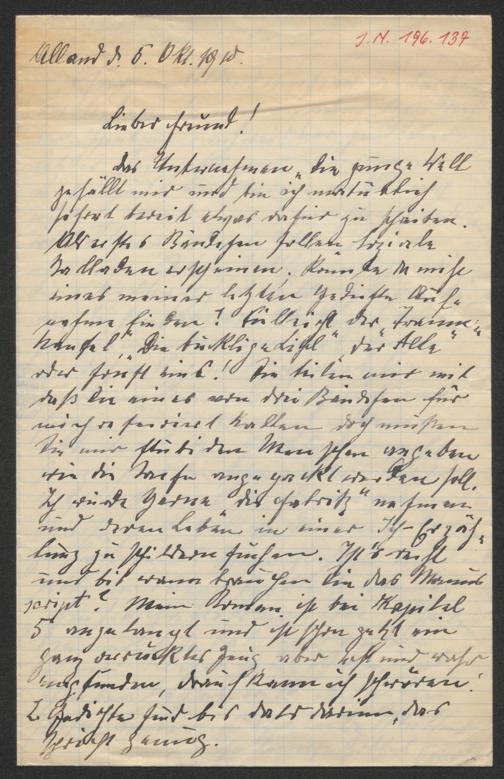 J.N. 196.137
Alland d. 5. Okt. 1910.
Lieber Freund!
Das Unternehmen „Die junge Welt
gefällt mir und bin ich natürlich
sofort bereit etwas dafür zu schreiben.
Als erstes Bändchen sollen soziale
Balladen erscheinen. Könnte da nicht
eines meiner letzten Gedichte Auf-
nahme finden? Vielleicht der
„Die bucklige Lisl" „Der Alte"
oder sonst eins! Sie teilen mir mit
daß Sie eines von den Bändchen für
mich reserviert halten doch müssen
Sie mir
wie die Sache angepackt werden soll.
Ich würde gerne „die Fabrik" nehmen
und deren Leben in einer Ich-Erzäh-
lung zu schildern suchen. Ist's recht
und bis wann brauchen Sie das Manus
script? Mein Roman ist bei Kapitel
5 angelangt und ist schon jetzt ein
ganz verrücktes Zeug aber echt und wahr
empfunden, drauf kann ich schwören!
2 Gedichte sind bis dato darinn, das
spricht genug.